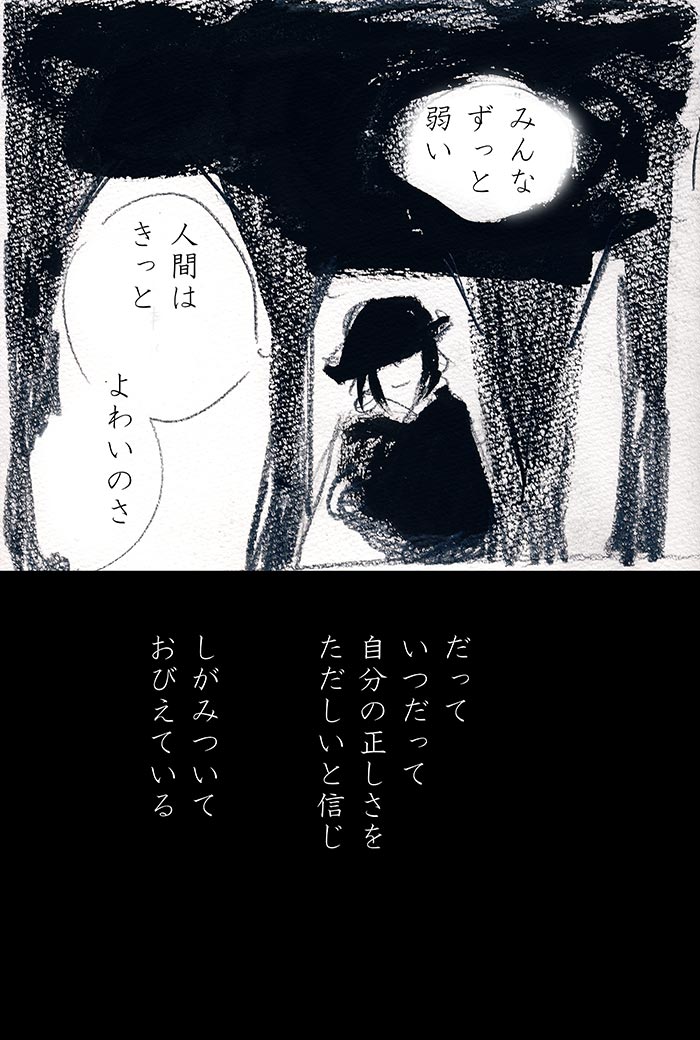 みんな
ずっと
弱い
人間は
きっと
よわいのさ
だって
いつだって
自分の正しさを
ただしいと信じ
しがみついて
おびえている